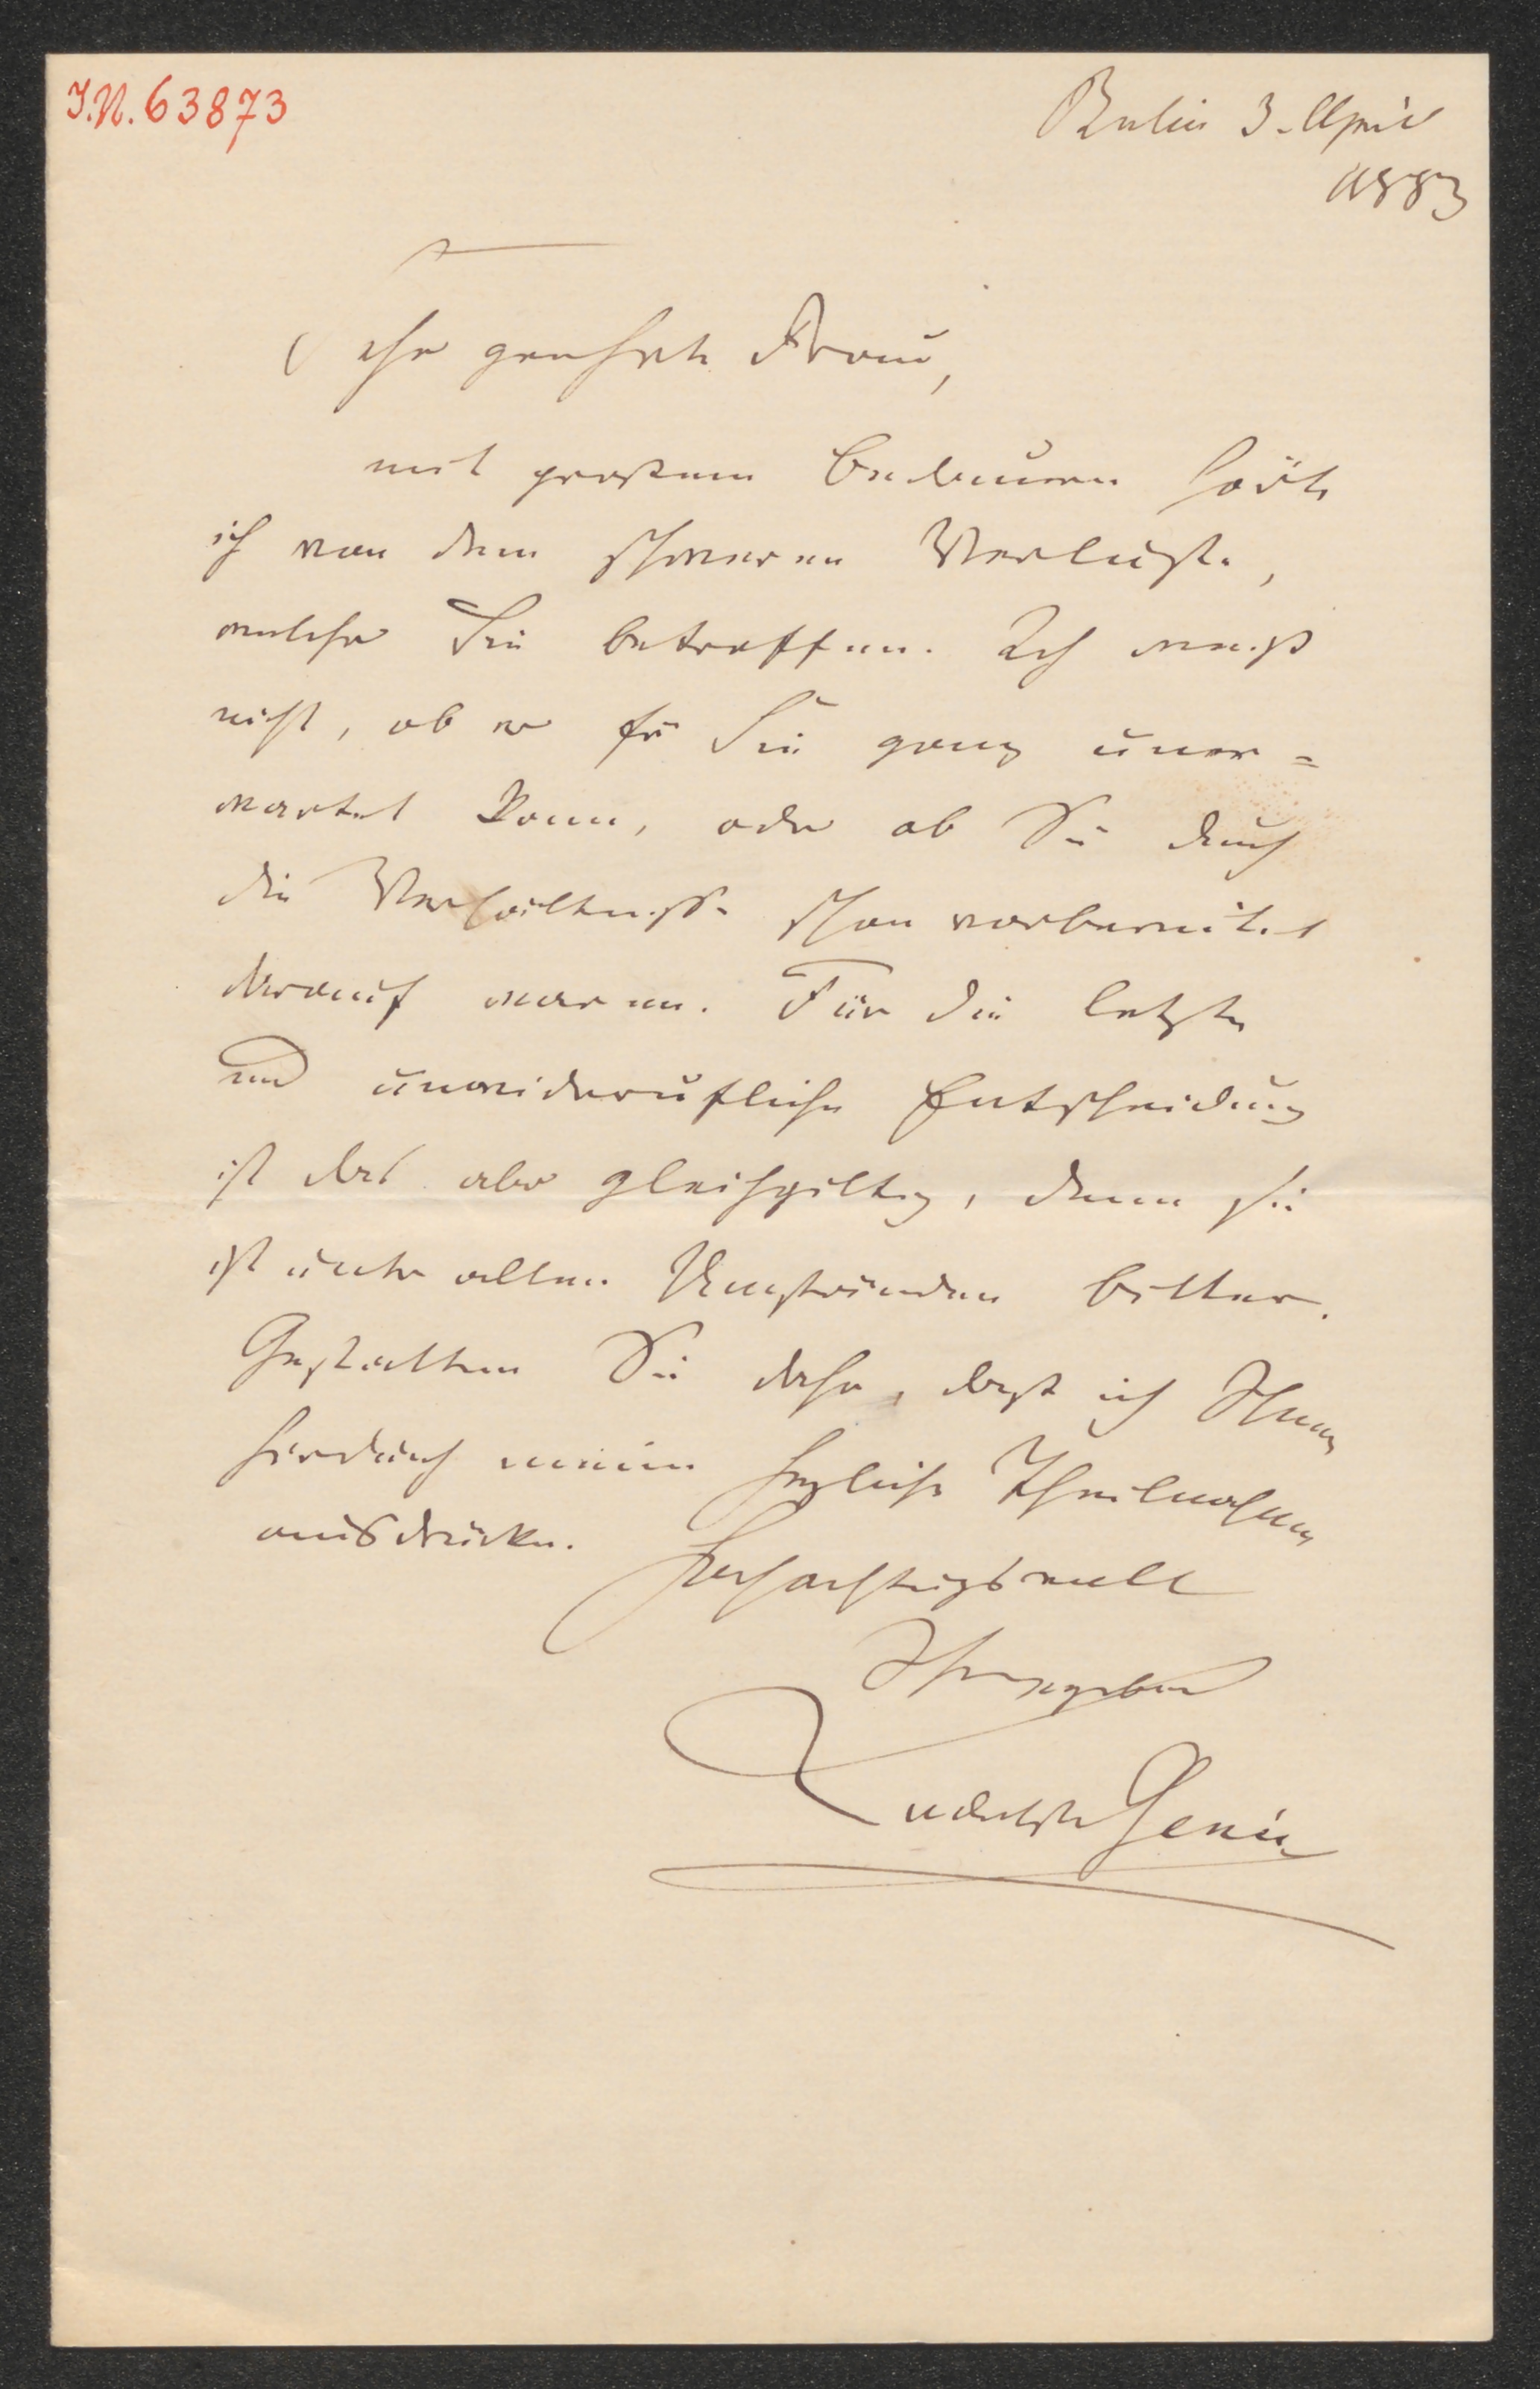 I.N. 63873
Berlin 3. April
1883
Sehr geehrte Frau,
mit großem Bedauern hörte
ich von dem schweren Verluste,
welcher Sie betroffen. Ich weiß
nicht, ob er für Sie ganz uner=
wartet kam, oder ob Sie durch
die Verhältnisse schon vorbereitet
darauf waren. Für die letzte
und unwiderrufliche Entscheidung
ist das aber gleichgiltig, denn sie
ist unter allen Umständen bitter.
Gestatten Sie daher, daß ich Ihnen
hierdurch meine herzliche Theilnahme
ausdrücke.
Hochachtungsvoll
Ihr ergebener
Rudolph Genée